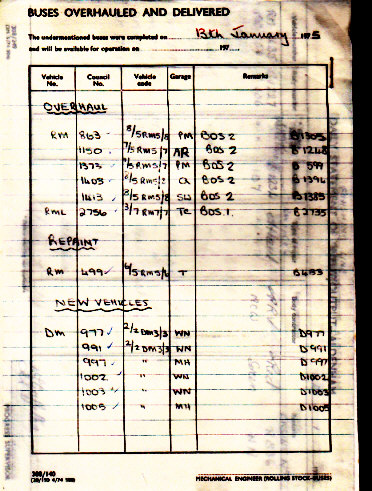 BUSES OVERHAULED AND DELIVERED
The undermentioned buses were completed on 13th January 1975
and will be available for operation on 197
Vehicle No. Council No. Vehicle code Garage Remarks
OVERHAUL
RM 863 8/5RM5/8 PM BOS 2 B1305
1150 7/5RM5/7 AR BOS 2 B1248
1373 PM BOS 2 B 599
1403 Q BOS 2 B1394
1413 8/5RM5/8 SW BOS 2 B1385
RML 2756 3/7RM7/7 TC BOS.1. B2735
REPAINT
RM 499 T B483
NEW VEHICLES
DM 977 2/2DM3/3 WN D977
991 2/2DM3/3 WN D991
997 " MH D997
1002 " WN D1002
1003 " WN D1003
1005 " MH D1005
308/140
MECHANICAL ENGINEER (ROLLING STOCK-BUSES)